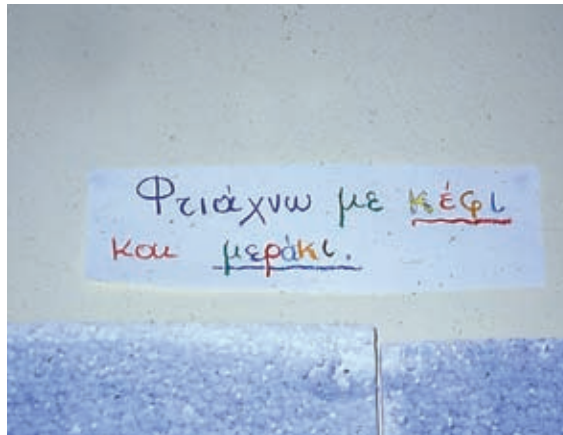 Φτιάχνω με κέφι
και μεράκι.